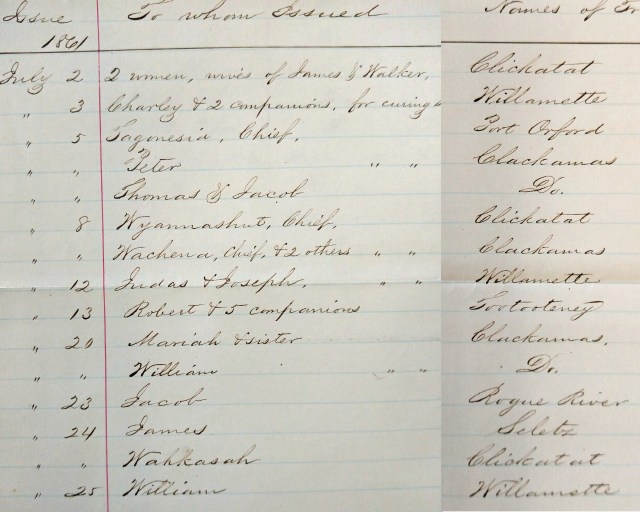 Issue To whom Issued Names of Tr
1861
July 2 2 women, wives of James & Walker, Clickatat
" 3 Charley & 2 companions, for curing Willamette
" 5 Sagonesia, Chief, Port Orford
" " Peter " " Clackamas
" " Thomas & Jacob Do.
" 8 Wyannashut, Chief, Clickatat
" " Wachena, Chief, & 2 others " " Clackamas
" 12 Judas & Joseph, " " Willamette
" 13 Robert & 5 companions Tootooteney
" 20 Mariah & sister Clackamas,
" " William " " Do.
" 23 Jacob Rogue River
" 24 James Seletz
" " Wahkasah Clickatat
" 25 William Willamette